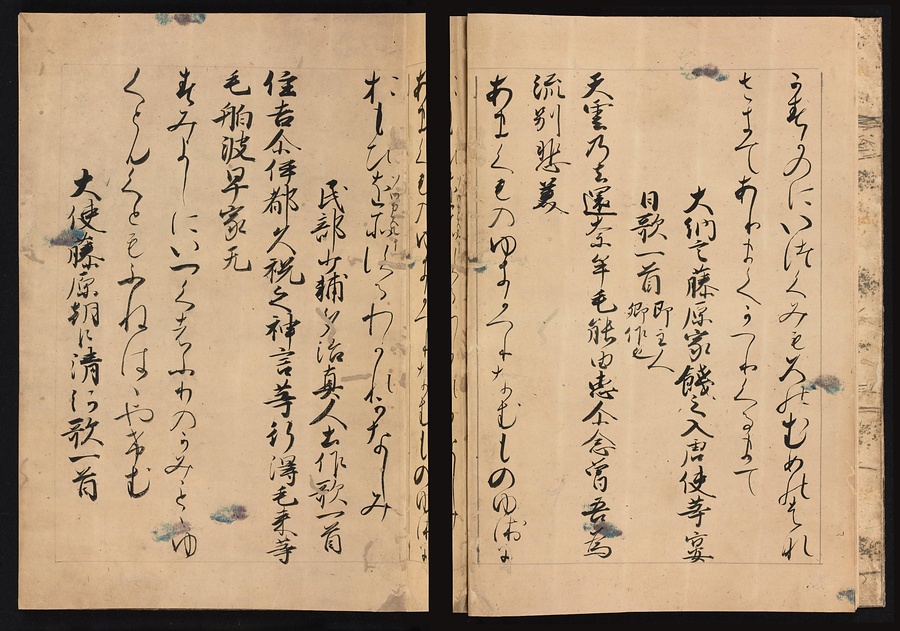 かすかのにいつくみもろのむめのはな
さきてありまてかへりくるまて
大納言藤原家餞之入唐使等宴
日歌一首 即主人卿作也
天雲乃去還奈牟毛能由恵尓念曽吾為
流別悲美
あまくものゆきかへりなむものゆゑに
おもひそわかするわかれかなしみ
民部少輔多治真人土作歌一首
住吉尓伊都久祝之神言等行得毛来等
毛舶波早家无
すみよしにいつくはふりのかみことゝゆ
くともくともふねはゝやけむ
大使藤原朝臣清河歌一首